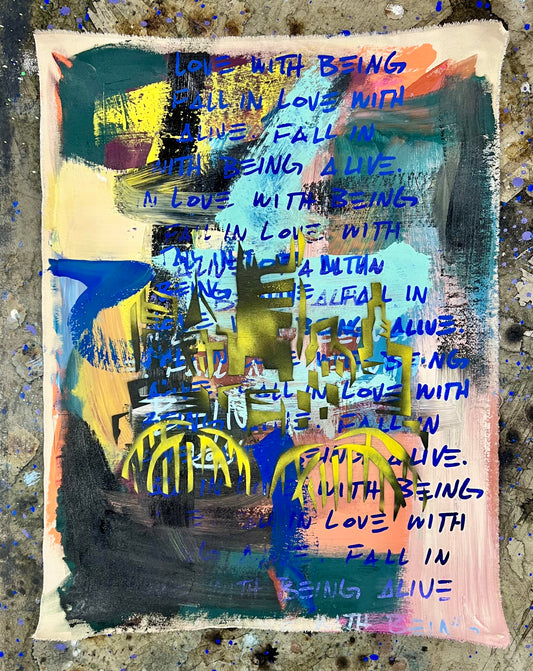 LOVE WITH BEING
FALL IN LOVE WITH
ALIVE. FALL IN
WITH BEING ALIVE.
N LOVE WITH BEING
FALL IN LOVE WITH
ALIVE
BEING FALL IN
BEING ALIVE.
WITH BEING
FALL IN LOVE WITH
BEING FALL IN
BEING ALIVE.
IN WITH BEING
FALL IN LOVE WITH
FALL IN
WITH BEING ALIVE
WITH BEING